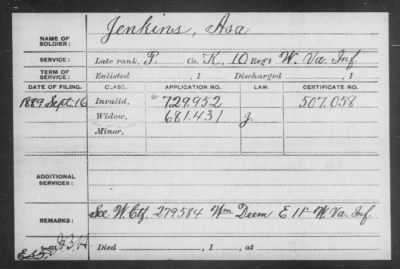 NAME OF SOLDIER: Jenkins, Asa
SERVICE: Late rank, P. Co. K, 10 Reg't W. Va. Inf.
TERM OF SERVICE: Enlisted , 1 Discharged , 1
DATE OF FILING. CLASS. APPLICATION NO. LAW. CERTIFICATE NO.
1889 Sept. 16 Invalid, 729.952 507.058
Widow, 681.431 J.
Minor,
ADDITIONAL SERVICES:
REMARKS: See W. Ctf. 279584 Wm Deem E 11" W. Va. Inf.
Died , 1 , at